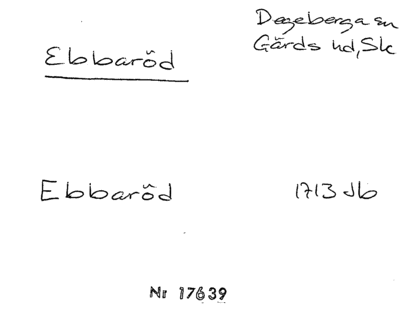 Degeberga sn
Ebbaröd
Gärds hd, Sk
Ebbaröd
1713 db
Nr 17639